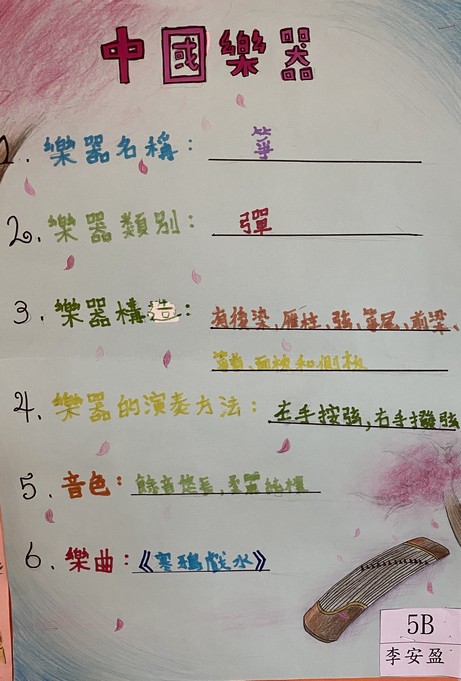 中國樂器
1. 樂器名稱： 箏
2. 樂器類別： 彈
3. 樂器構造： 有後梁、雁柱、弦、箏尾、前梁、
箏首、面板和側板
4. 樂器的演奏方法： 左手按弦，右手撥弦
5. 音色： 餘音悠長，柔美純樸
6. 樂曲：《寒鴉戲水》
5B
李安盈